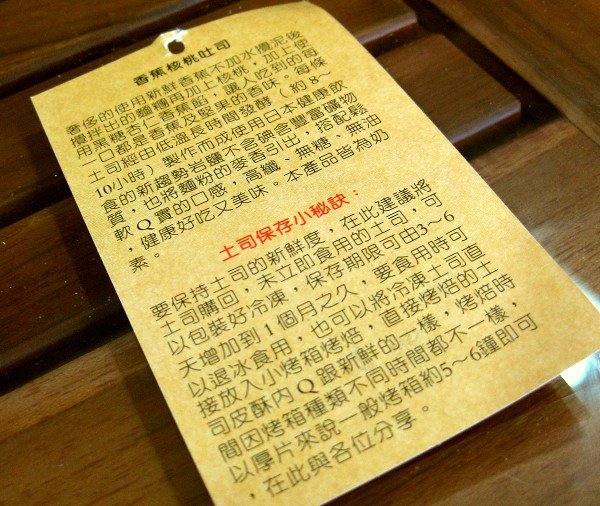 香蕉核桃吐司
奢侈的使用新鮮香蕉不加水攪泥後
攪拌出的麵糰再加上核桃，加上使
用黑糖杏仁香蕉餡，讓人吃到的每
一口都是香蕉及堅果的香味。每條
土司經由低溫長時間發酵（約 8～
10小時）製作而成使用日本健康飲
食的新趨勢岩鹽不含碘含豐富礦物
質，也將麵粉的麥香引出，搭配鬆
軟Ｑ實的口感，高纖、無糖、無油
，健康好吃又美味。本產品皆為奶
素。
土司保存小秘訣：
要保持土司的新鮮度，在此建議將
土司購回，未立即食用的土司，可
以包裝好冷凍，保存期限可由3～6
天增加到 1 個月之久，要食用時可
以退冰食用，也可以將冷凍土司直
接放入小烤箱烤焙，直接烤焙的土
司皮酥內Ｑ跟新鮮的一樣，烤焙時
間因烤箱種類不同時間都不一樣，
以厚片來說一般烤箱約5～6鐘即可
，在此與各位分享。